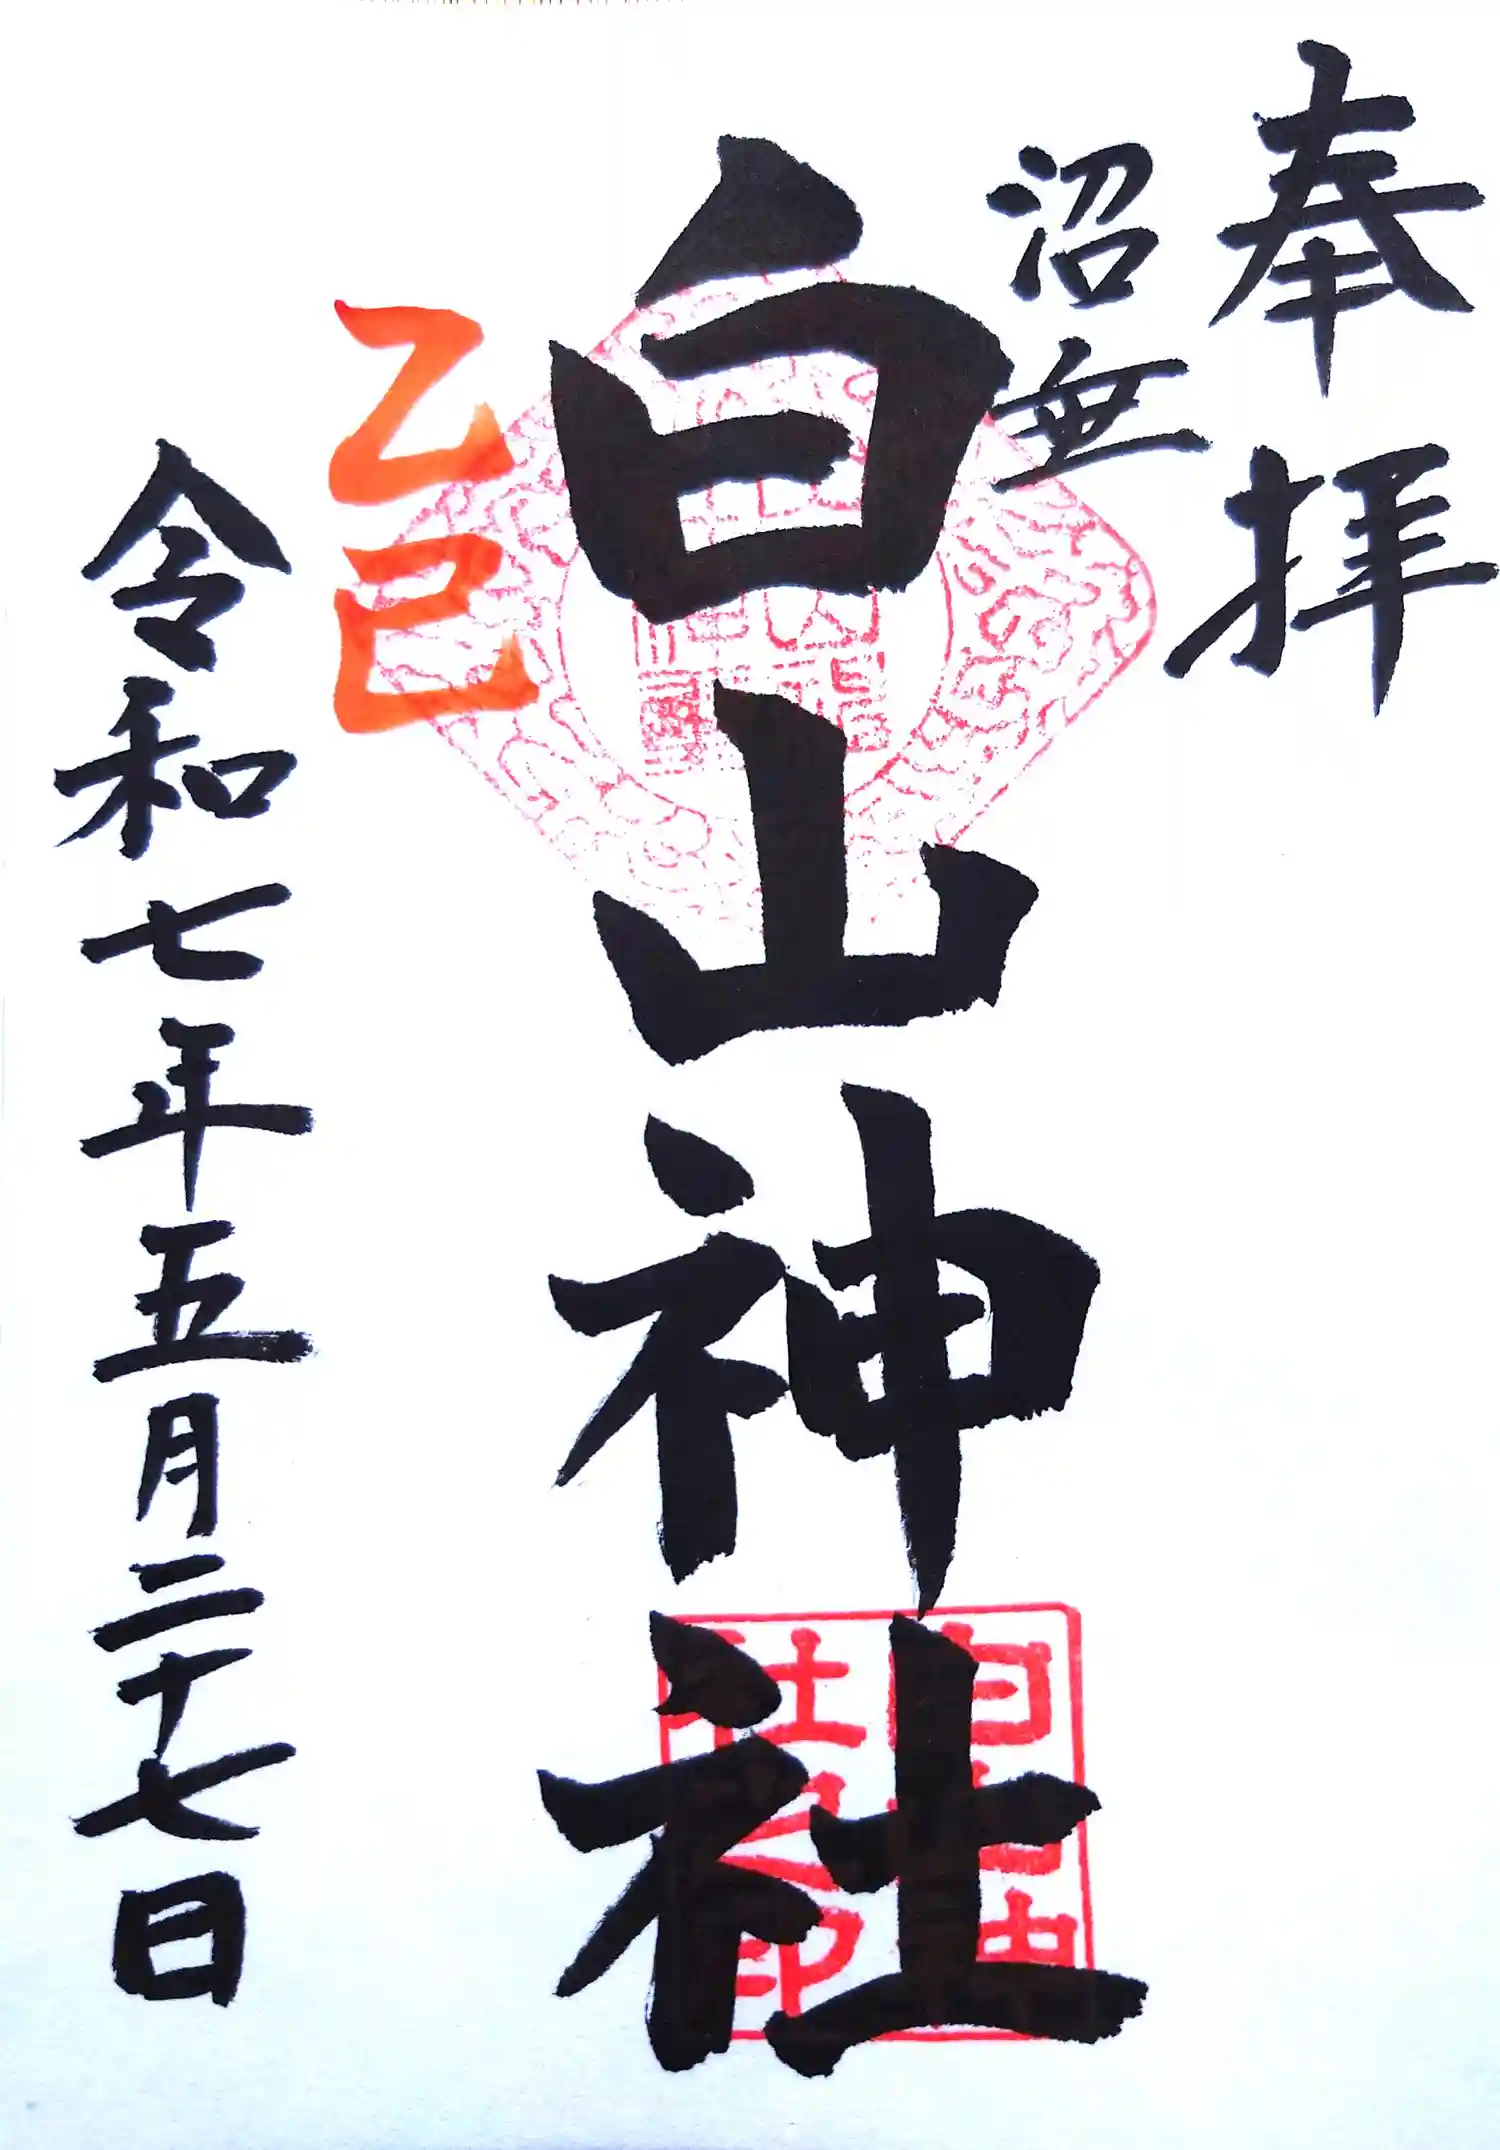 奉拝
沼垂
白山神社
乙巳
令和七年五月二十七日
白山神
社之印